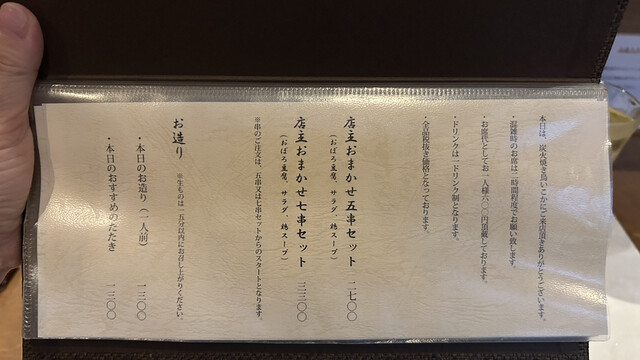 本日は、炭火焼き鳥いこかにご来店頂きありがとうございます。
・混雑時のお席は二時間程度でお願い致します。
・お席代としてお一人様六〇〇円頂戴しております。
・ドリンクは一ドリンク制となります。
・全品税抜き価格となっております。
店主おまかせ五串セット 二七〇〇
（おぼろ豆腐、サラダ、鶏スープ）
店主おまかせ七串セット 三三〇〇
（おぼろ豆腐、サラダ、鶏スープ）
※串のご注文は、五串又は七串セットからのスタートとなります。
お造り ※生ものは、一五分以内にお召し上がりください。
・本日のお造り（一人前） 一三〇〇
・本日のおすすめのたたき 一二〇〇